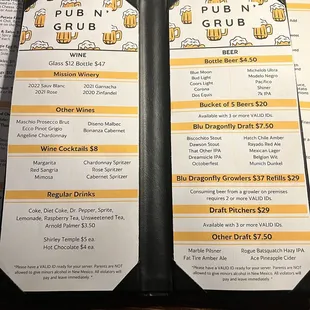 PUB N'
GRUB
WINE
Glass $12 Bottle $47
Mission Winery
2022 Sauv Blanc
2021 Rosé
2021 Garnacha
2020 Zinfandel
Other Wines
Maschio Prosecco Brut
Ecco Pinot Grigio
Angeline Chardonnay
Diseno Malbec
Bonanza Cabernet
Wine Cocktails $8
Margarita
Red Sangria
Mimosa
Chardonnay Spritzer
Rose Spritzer
Cabernet Spritzer
Regular Drinks
Coke, Diet Coke, Dr. Pepper, Sprite,
Lemonade, Raspberry Tea, Unsweetened Tea,
Arnold Palmer $3.50
Shirley Temple $5 ea
Hot Chocolate $4 ea
*Please have a VALID ID ready for your server. Parents are NOT
allowed to give minors alcohol in New Mexico. All violators will
pay and leave immediately. *
PUB N'
GRUB
BEER
Bottle Beer $4.50
Blue Moon
Bud Light
Coors Light
Corona
Dos Equis
Michelob Ultra
Modelo Negra
Pacifico
Shiner
7k IPA
Bucket of 5 Beers $20
Available with 3 or more VALID IDs.
Blu Dragonfly Draft $7.50
Biscochito Stout
Dawson Stout
That Other IPA
Dreamsicle IPA
Octoberfest
Hatch Chile Amber
Rayado Red Ale
Mexican Lager
Belgian Wit
Munich Dunkel
Blu Dragonfly Growlers $37 Refills $29
Consuming beer from a growler on premises
requires 2 or more VALID IDs.
Draft Pitchers $29
Available with 3 or more VALID IDs.
Other Draft $7.50
Marble Pilsner
Fat Tire Amber Ale
Rogue Batsquatch Hazy IPA
Ace Pineapple Cider
*Please have a VALID ID ready for your server. Parents are NOT
allowed to give minors alcohol in New Mexico. All violators will
pay and leave immediately. *